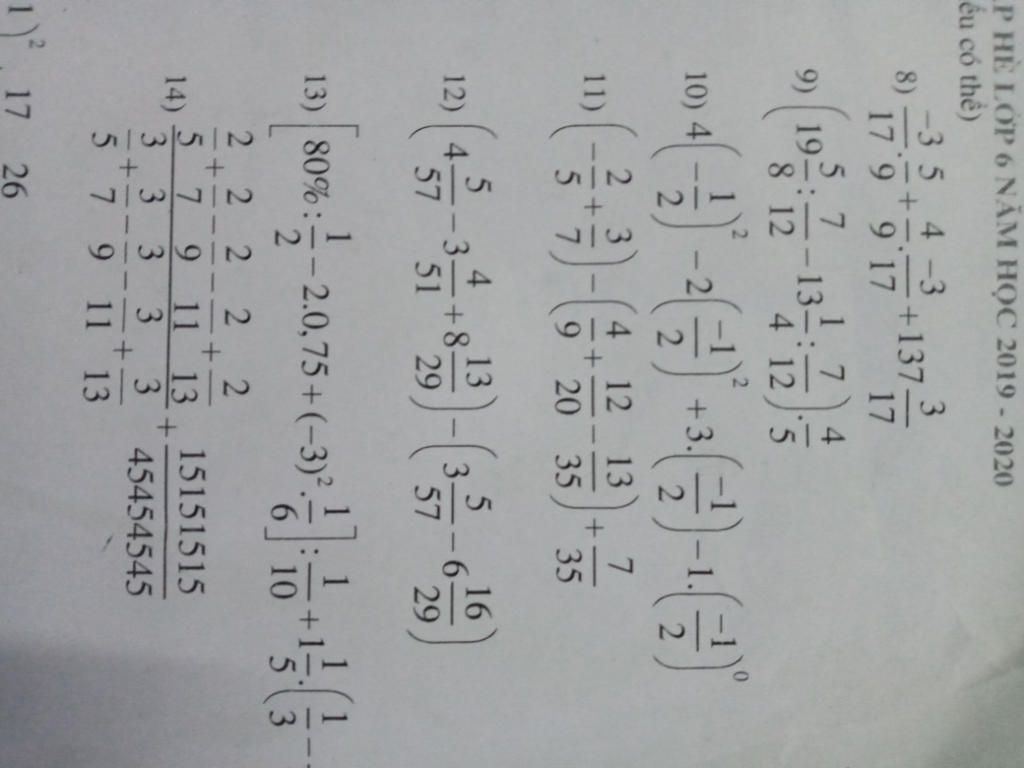 ẬP HÈ LỚP 6 NĂM HỌC 2019 - 2020
ếu có thể)
8) \frac{-3}{17}.\frac{5}{9}+\frac{4}{9}.\frac{-3}{17}+137\frac{3}{17}
9) \left(19\frac{5}{8}:\frac{7}{12}-13\frac{1}{4}:\frac{7}{12}\right).\frac{4}{5}
10) 4\left(-\frac{1}{2}\right)^2-2\left(\frac{-1}{2}\right)^2+3.\left(\frac{-1}{2}\right)-1.\left(\frac{-1}{2}\right)^0
11) \left(-\frac{2}{5}+\frac{3}{7}\right)-\left(\frac{4}{9}+\frac{12}{20}-\frac{13}{35}\right)+\frac{7}{35}
12) \left(4\frac{5}{57}-3\frac{4}{51}+8\frac{13}{29}\right)-\left(3\frac{5}{57}-6\frac{16}{29}\right)
13) \left[80\%:\frac{1}{2}-2.0,75+(-3)^2.\frac{1}{6}\right]:\frac{1}{10}+1\frac{1}{5}.\left(\frac{1}{3}-
14) \frac{\frac{2}{5}+\frac{2}{7}-\frac{2}{9}-\frac{2}{11}+\frac{2}{13}}{\frac{3}{5}+\frac{3}{7}-\frac{3}{9}-\frac{3}{11}+\frac{3}{13}}+\frac{15151515}{45454545}
1)^2 . 17 26